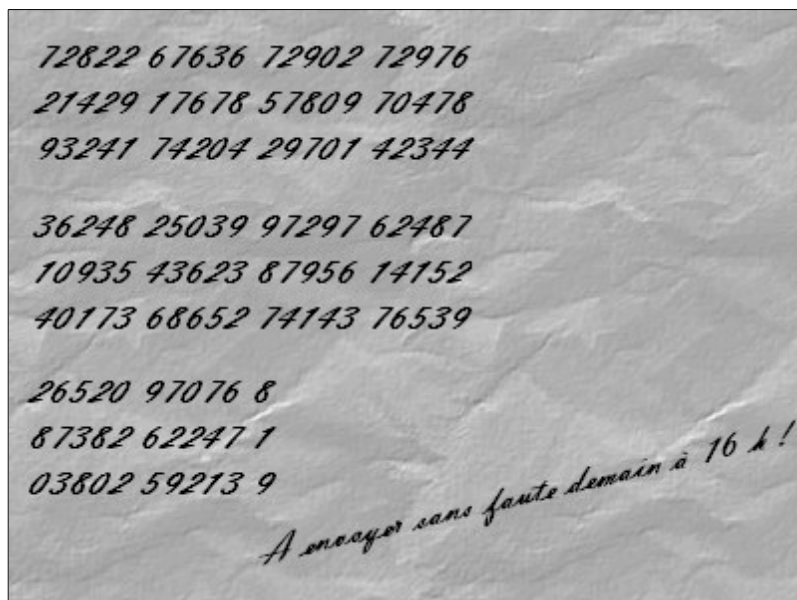 72822 67636 72902 72976
21429 17678 57809 70478
93241 74204 29701 42344
36248 25039 97297 62487
10935 43623 87956 14152
40173 68652 74143 76539
26520 97076 8
87382 62247 1
03802 59213 9
A envoyer sans faute demain à 16 h !